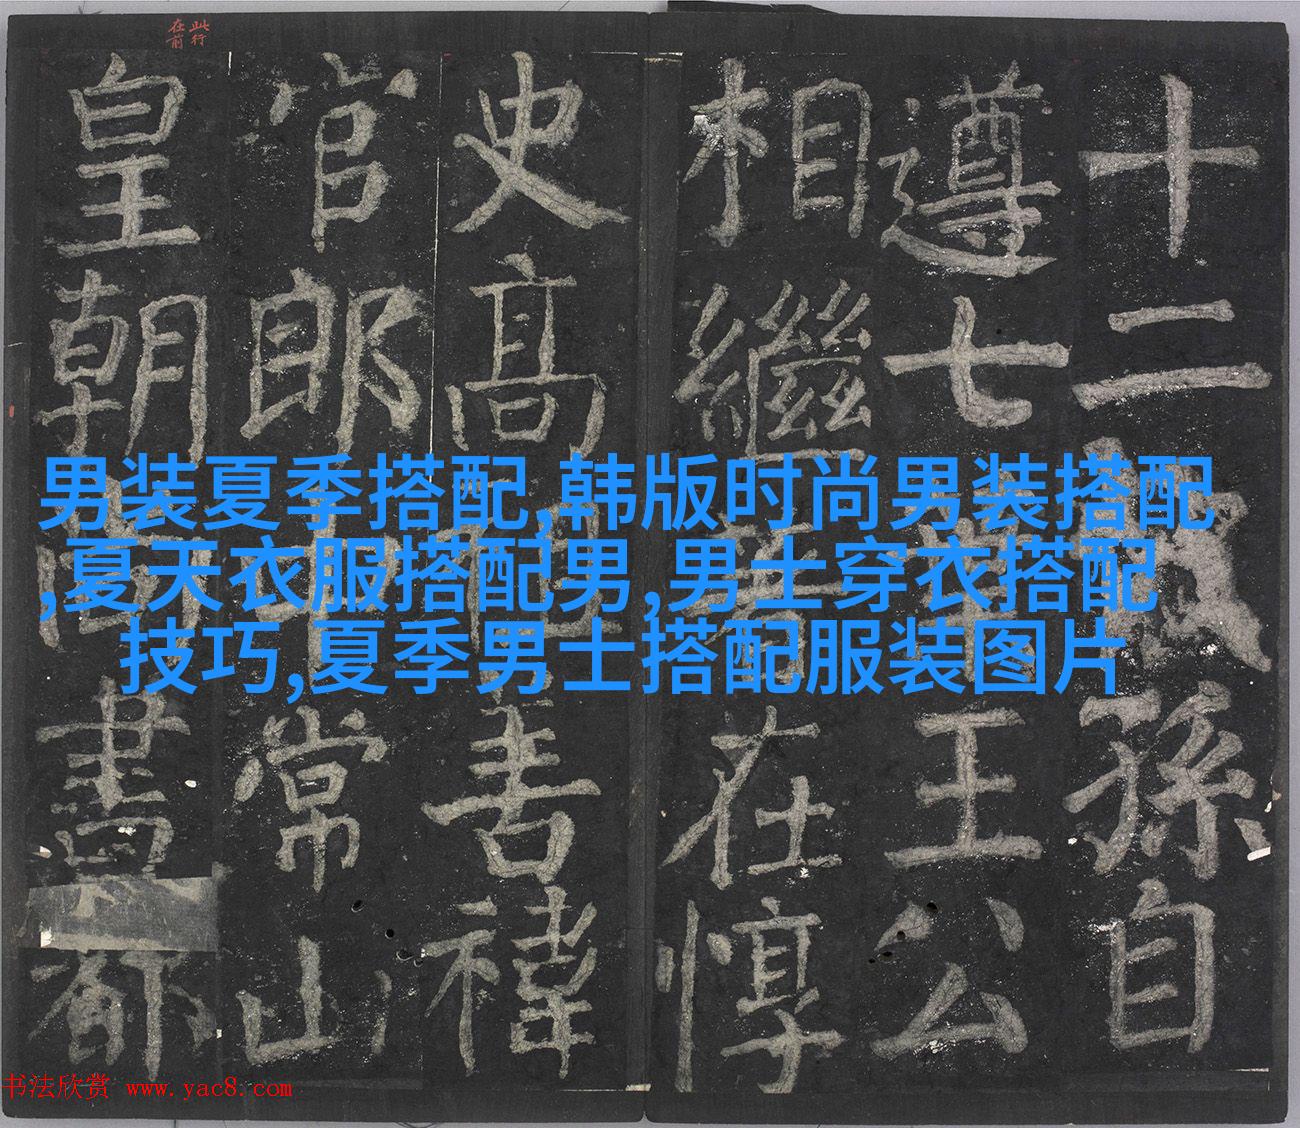 十二孫自
遵七王公
相繼在惇
史高善禕
官郎常山
皇朝書都
此行
在前
男装夏季搭配,韩版时尚男装搭配
,夏天衣服搭配男,男士穿衣搭配
技巧,夏季男士搭配服装图片
书法欣赏 www.yac8.com